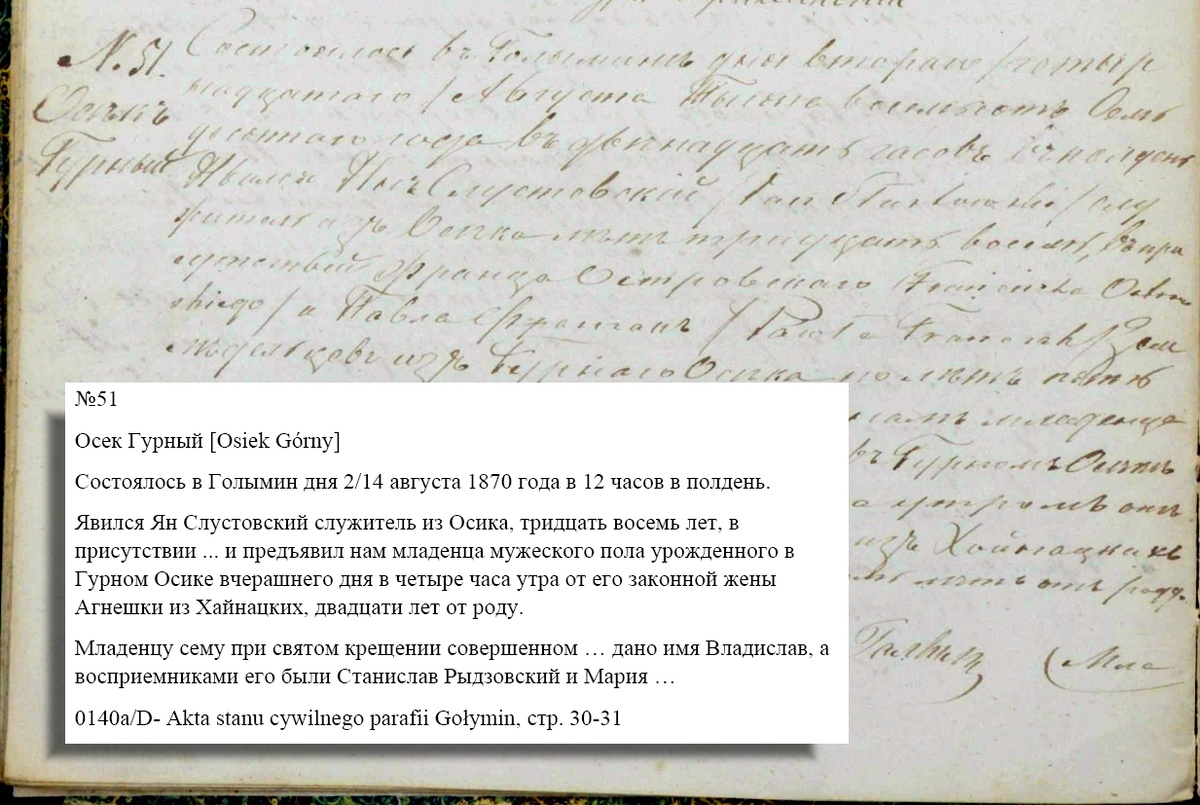 N. 51.
Осѣкъ
Гурный
Состоялось въ Голыминѣ дня втораго /четыр
надцатаго/ Августа Тысяча восемьсотъ Семь
десятаго года въ двѣнадцать часовъ въ полдень
Явился Янъ Слустовскій /Jan Slustowski/ слу
житель изъ Осѣка лѣтъ тридцать восемь, въ при
сутствіи Франца Островскаго Franciszka Ostrow
skiego/ и Павла /Pawła Zем
ледѣльцевъ изъ Гурнаго Осѣка по лѣтъ
намъ младенца
въ Гурномъ Осѣкѣ
утромъ отъ
изъ Хойнацкихъ
лѣтъ отъ роду.
№51
Осек Гурный [Osiek Górny]
Состоялось в Голымин дня 2/14 августа 1870 года в 12 часов в полдень.
Явился Ян Слустовский служитель из Осика, тридцать восемь лет, в
присутствии ... и предъявил нам младенца мужеского пола урожденного в
Гурном Осике вчерашнего дня в четыре часа утра от его законной жены
Агнешки из Хайнацких, двадцати лет от роду.
Младенцу сему при святом крещении совершенном … дано имя Владислав, а
восприемниками его были Станислав Рыдзовский и Мария …
0140a/D- Akta stanu cywilnego parafii Gołymin, стр. 30-31